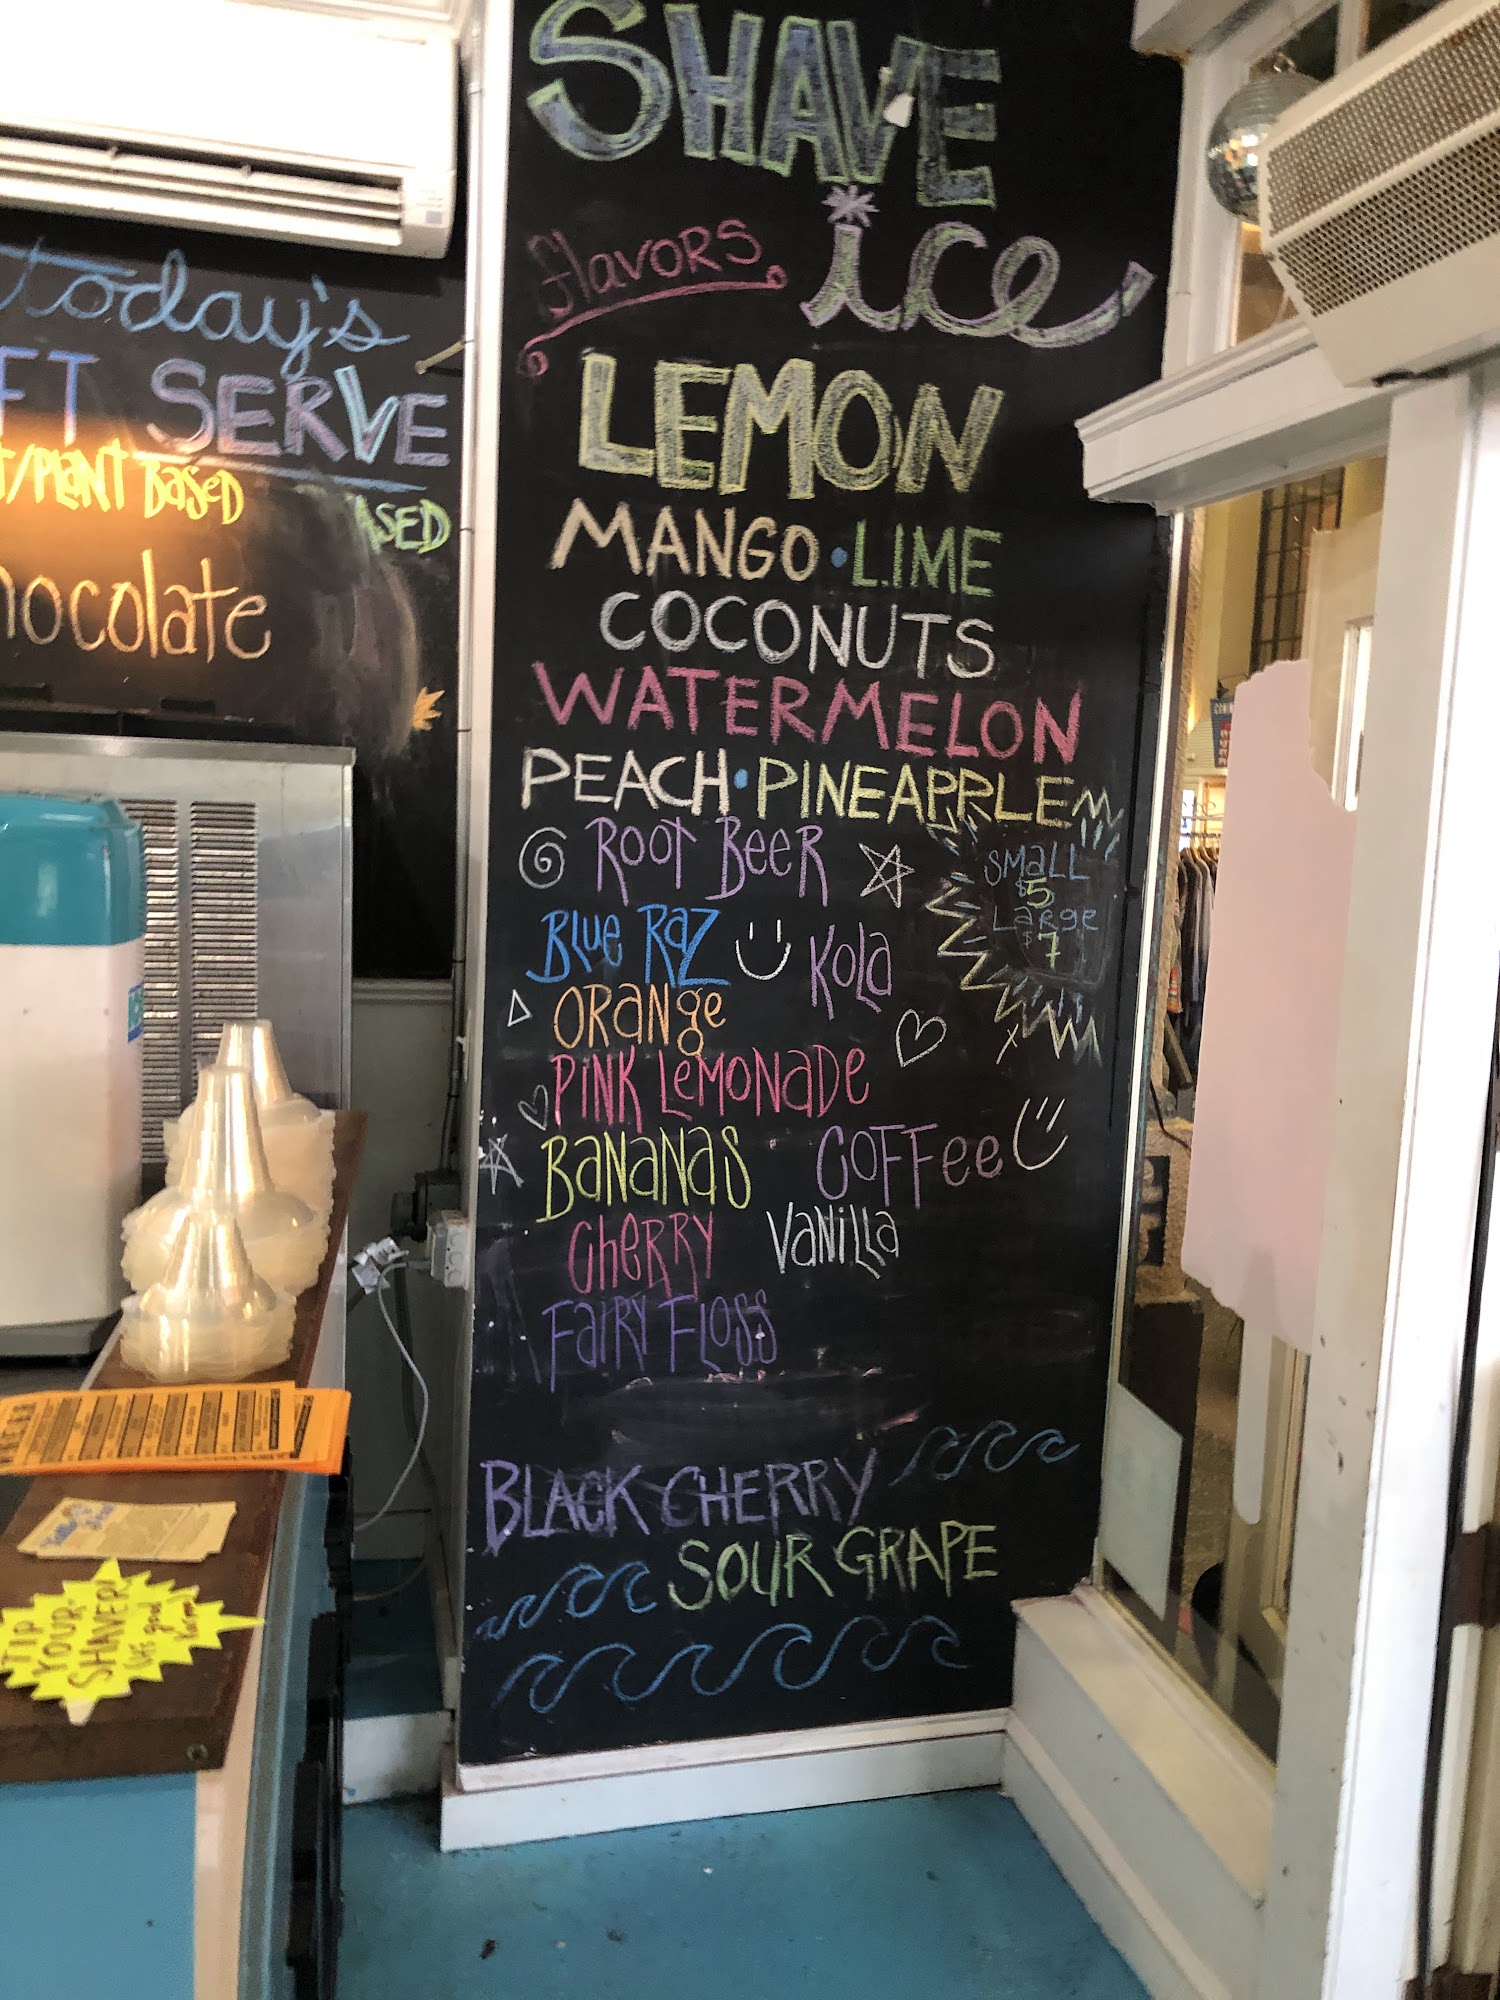 SHAVE
ice
flavors
LEMON
MANGO • LIME
COCONUTS
WATERMELON
PEACH • PINEAPPLE
ROOT BeeR
BLUE RAZ
KOLA
ORANge
PINK LeMONADE
BANANAS
COFFee
CHERRY
VANILLA
FAIRY FLOSS
SMALL
$5
LARge
$7
BLACK CHERRY
SOUR GRAPE
today's
FT SERVE
T/PLANT BASeD
ASED
hocolate
TIP
YOUR
SHAVER!